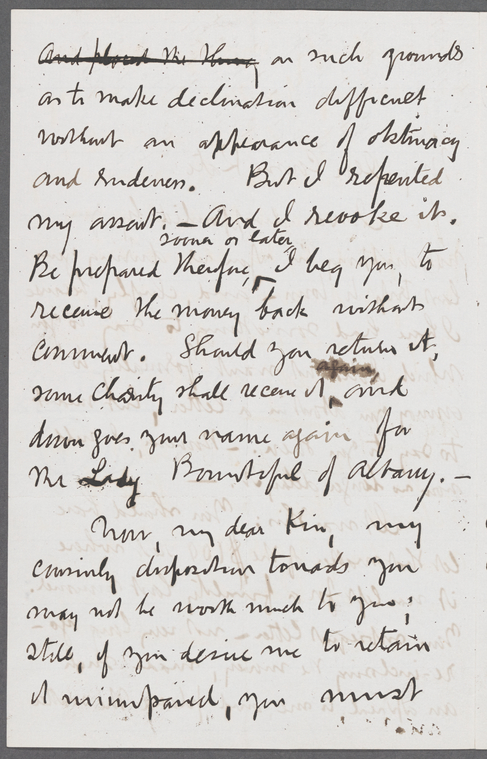 And placed the thing on such grounds
as to make declination difficult
without an appearance of obstinacy
and rudeness. But I repented
my assent. — And I revoke it.
sooner or later,
Be prepared therefore, I beg you, to
receive the money back without
comment. Should you return it,
again,
some charity shall receive it, and
down goes your name again for
the Lady Bountiful of Albany. —
Now, my dear Kin, my
cousinly disposition towards you
may not be worth much to you;
still, if you desire me to retain
it unimpaired, you must